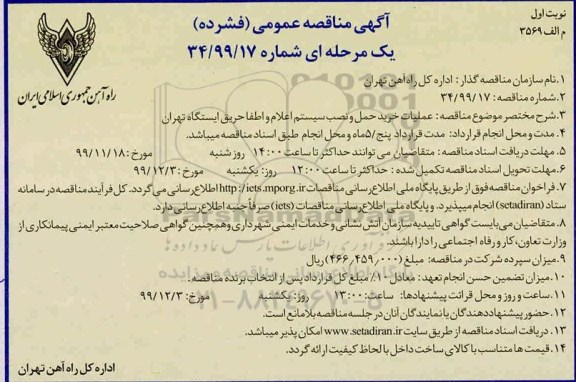 نوبت اول
م الف ۳۵۶۹
آگهی مناقصه عمومی (فشرده)
یک مرحله ای شماره ۳۴/۹۹/۱۷
راه آهن جمهوری اسلامی ایران
۱.نام سازمان مناقصه گذار: اداره کل راه آهن تهران
۲.شماره مناقصه: ۳۴/۹۹/۱۷
۳.شرح مختصر موضوع مناقصه: عملیات خرید حمل و نصب سیستم اعلام و اطفا حریق ایستگاه تهران
۴.مدت و محل انجام قرارداد: مدت قرارداد پنج/۵ماه و محل انجام طبق اسناد مناقصه میباشد.
۵.مهلت دریافت اسناد مناقصه: متقاضیان می توانند حداکثر تا ساعت ۱۴:۰۰ روز شنبه مورخ: ۹۹/۱۱/۱۸
۶.مهلت تحویل اسناد مناقصه تکمیل شده: حداکثر تا ساعت ۱۲:۰۰ روز: یکشنبه مورخ: ۹۹/۱۲/۳
۷.فراخوان مناقصه فوق از طریق پایگاه ملی اطلاع رسانی مناقصات http://iets.mporg.ir اطلاع رسانی می گردد. کل فرآیند مناقصه در سامانه
ستاد (setadiran) انجام میپذیرد. و پایگاه ملی اطلاع رسانی مناقصات (iets) صرفاً جنبه اطلاع رسانی دارد.
۸.متقاضیان می بایست گواهی تاییدیه سازمان آتش نشانی و خدمات ایمنی شهرداری و همچنین گواهی صلاحیت معتبر ایمنی پیمانکاری از
وزارت تعاون، کار و رفاه اجتماعی را دارا باشند.
۹.میزان سپرده شرکت در مناقصه: مبلغ (۴۶۶,۴۵۹,۰۰۰) ریال
۱۰.میزان تضمین حسن انجام تعهد: معادل ۱۰٪ مبلغ کل قرارداد پس از انتخاب برنده مناقصه.
۱۱.ساعت و روز و محل قرائت پیشنهادها: ساعت: ۱۳:۰۰ روز: یکشنبه مورخ: ۹۹/۱۲/۳
۱۲.حضور پیشنهاددهندگان یا نمایندگان آنان در جلسه مناقصه بلامانع است.
۱۳.دریافت اسناد مناقصه از طریق سایت www.setadiran.ir امکان پذیر میباشد.
۱۴.قیمت ها متناسب با کالای ساخت داخل با لحاظ کیفیت ارائه گردد.
اداره کل راه آهن تهران
ParsNamadData